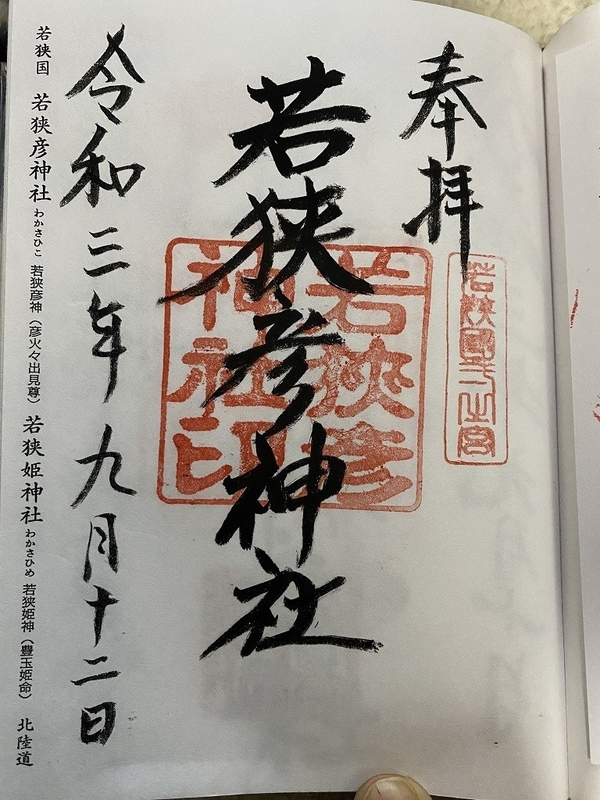 奉拝
若狭國一之宮
若狭彦神社
若狭彦神社印
令和三年九月十二日
若狭国 若狭彦神社 わかさひこ 若狭彦神（彦火々出見尊） 若狭姫神社 わかさひめ 若狭姫神（豊玉姫命） 北陸道